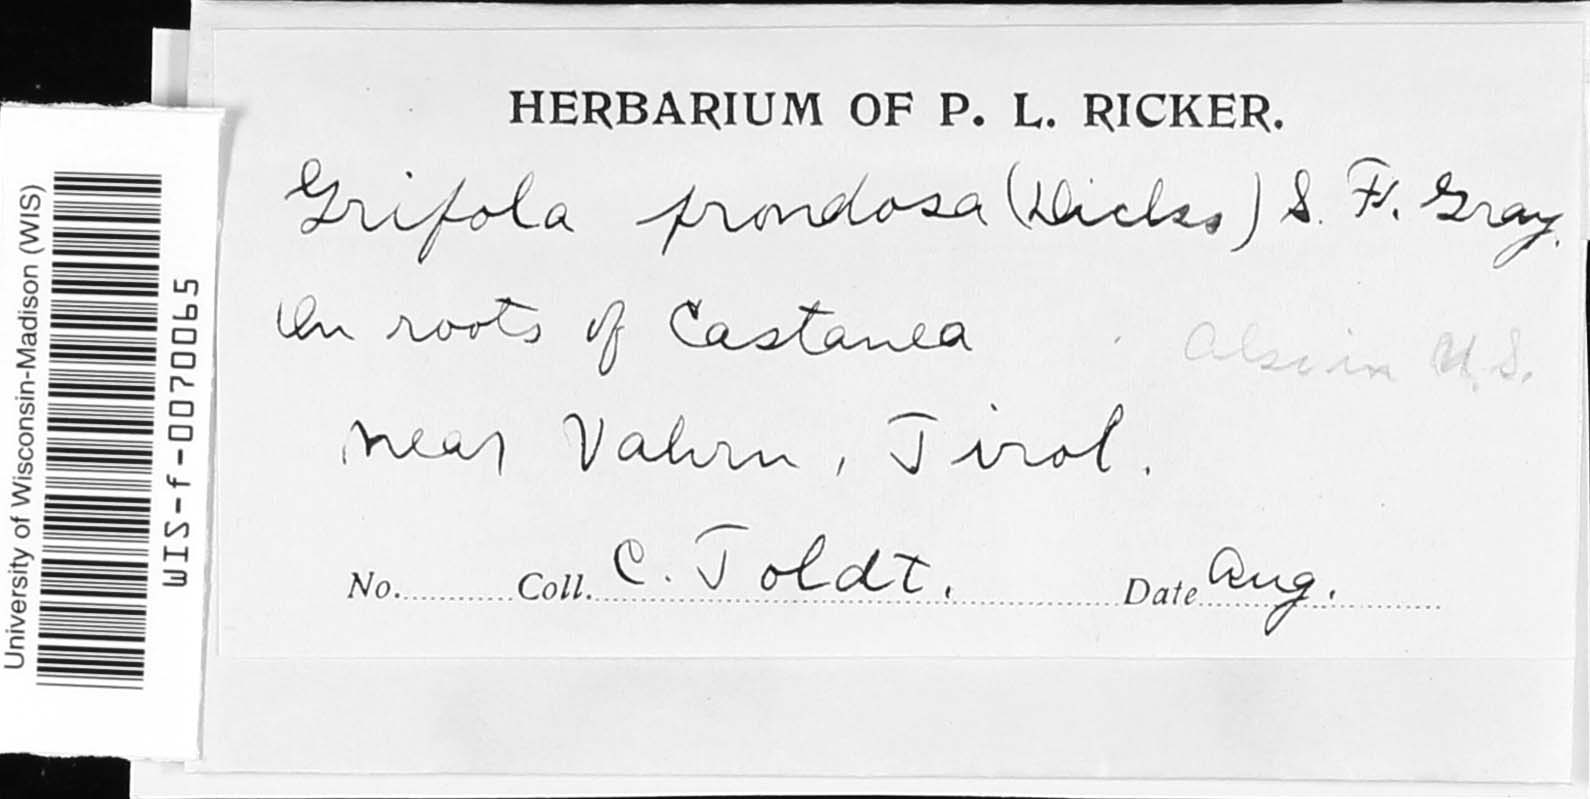 HERBARIUM OF P. L. RICKER.
Grifola frondosa (Dicks) S. F. Gray.
On roots of Castanea
Also in U.S.
near Vahrn, Tirol.
No. Coll. C. Toldt. Date Aug.
University of Wisconsin-Madison (WIS)
WIS-f-0070065